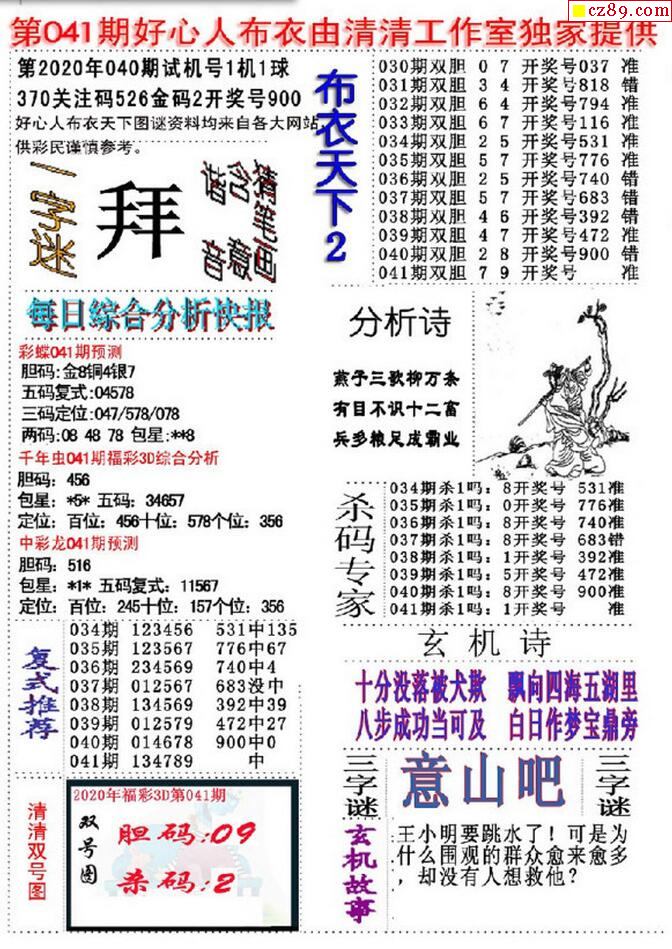 cz89.com
第041期好心人布衣由清清工作室独家提供
第2020年040期试机号1机1球
370关注码526金码2开奖号900
好心人布衣天下图谜资料均来自各大网站,
供彩民谨慎参考。
一字迷
拜
猜笔画
含意
谐音
每日综合分析快报
彩蝶041期预测
胆码:金8铜4银7
五码复式:04578
三码定位:047/578/078
两码:08 48 78 包星:**8
千年虫041期福彩3D综合分析
胆码: 456
包星: *5* 五码: 34657
定位: 百位: 456十位: 578个位: 356
中彩龙041期预测
胆码: 516
包星: *1* 五码复式: 11567
定位: 百位: 245十位: 157个位: 356
复式推荐
034期 123456 531中135
035期 123567 776中67
036期 234569 740中4
037期 012567 683没中
038期 134569 392中39
039期 012579 472中27
040期 014678 900中0
041期 134789 中
清清双号图
2020年福彩3D第041期
双号图
胆码:09
杀码:2
布衣天下2
030期双胆 0 7 开奖号037 准
031期双胆 3 4 开奖号818 错
032期双胆 6 4 开奖号794 准
033期双胆 6 7 开奖号116 准
034期双胆 2 5 开奖号531 准
035期双胆 5 7 开奖号776 准
036期双胆 2 5 开奖号740 错
037期双胆 5 7 开奖号683 错
038期双胆 4 6 开奖号392 错
039期双胆 4 7 开奖号472 准
040期双胆 2 8 开奖号900 错
041期双胆 7 9 开奖号 准
分析诗
燕子三歌柳万条
有目不识十二富
兵多粮足成霸业
杀码专家
034期杀1吗: 8开奖号 531准
035期杀1吗: 0开奖号 776准
036期杀1吗: 8开奖号 740准
037期杀1吗: 8开奖号 683错
038期杀1吗: 1开奖号 392准
039期杀1吗: 5开奖号 472准
040期杀1吗: 8开奖号 900准
041期杀1吗: 1开奖号 准
玄机诗
十分没落被犬欺 飘向四海五湖里
八步成功当可及 白日作梦宝鼎旁
三字谜
意山吧
三字谜
玄机故事
王小明要跳水了! 可是为
什么围观的群众愈来愈多
, 却没有人想救他?